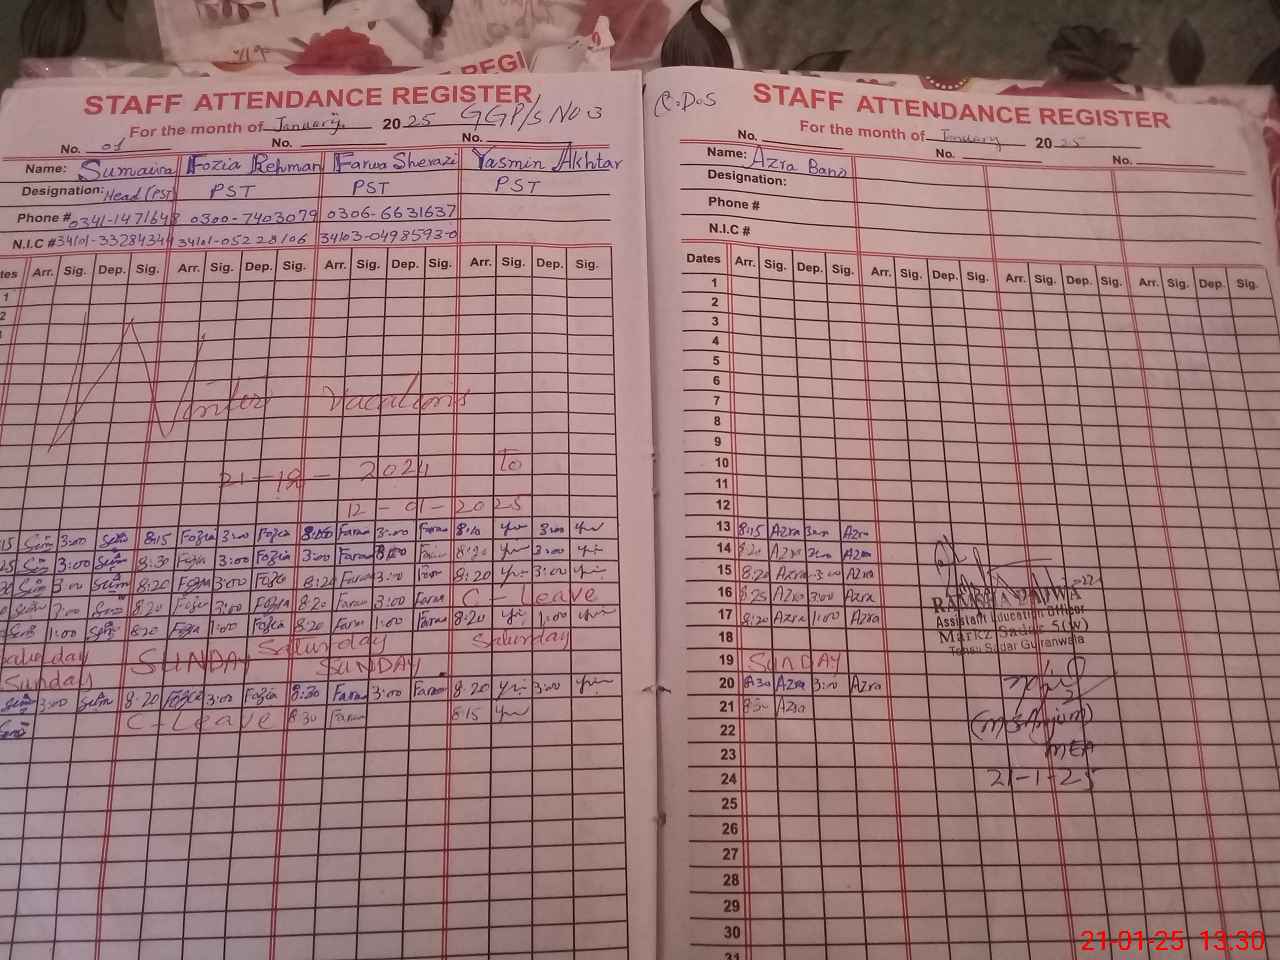 REGI
STAFF ATTENDANCE REGISTER
For the month of January 2025 GGP/s NO 3
No. 01 No. No.
Name: Sumaira Fozia Rehman Farwa Sherazi Yasmin Akhtar
Designation: Head (PST PST PST PST
Phone # 0341-1471648 0300-7403079 0306-6631637
N.I.C # 34101-33284344 34101-05228106 34103-0498593-0
tes Arr. Sig. Dep. Sig. Arr. Sig. Dep. Sig. Arr. Sig. Dep. Sig. Arr. Sig. Dep. Sig.
1
2
Winter Vacations
21-12-2024 To
12-01-2025
15 Sum 3:00 Sum 8:15 Fozia 3:00 Fozia Farwa 3:00 Farwa 8:10 3:00
25 Sum 3:00 Sum 8:30 Fozia 3:00 Fozia 3:00 Farwa Farwa 8:20 3:00
Sum 3:00 Sum 8:20 Fozia 3:00 Fozia 8:20 Farwa 3:00 8:20 3:00
8:20 Fozia 3:00 Fozia 8:20 Farwa 3:00 Farwa C-Leave
1:00 8:20 Fozia 1:00 Fozia 8:20 Farwa 1:00 Farwa 8:20 1:00
Saturday Saturday Saturday
Sunday SUNDAY SUNDAY
Sum 3:00 Sum 8:20 Fozia 3:00 Fozia 8:30 Farwa 3:00 Farwa 8:20 3:00
C-Leave 8:30 Farwa 8:15
C.D.S
STAFF ATTENDANCE REGISTER
For the month of January 2025
No. No. No.
Name: Azra Bano
Designation:
Phone #
N.I.C #
Dates Arr. Sig. Dep. Sig. Arr. Sig. Dep. Sig. Arr. Sig. Dep. Sig. Arr. Sig. Dep. Sig.
1
2
3
4
5
6
7
8
9
10
11
12
13 8:15 Azra 3:00 Azra
14 8:20 Azra 3:00 Azra
15 8:20 Azra 3:00 Azra
16 8:25 Azra 3:00 Azra
17 8:20 Azra 1:00 Azra
18
19 SUNDAY
20 8:30 Azra 3:00 Azra
21 8:30 Azra
22
23
24
25
26
27
28
29
30
31
Assistant Education Officer
Markz Sadar 5(W)
Tehsil Sadar Gujranwala
(M S Anjum)
MEA
21-1-25
21-01-25 13:30